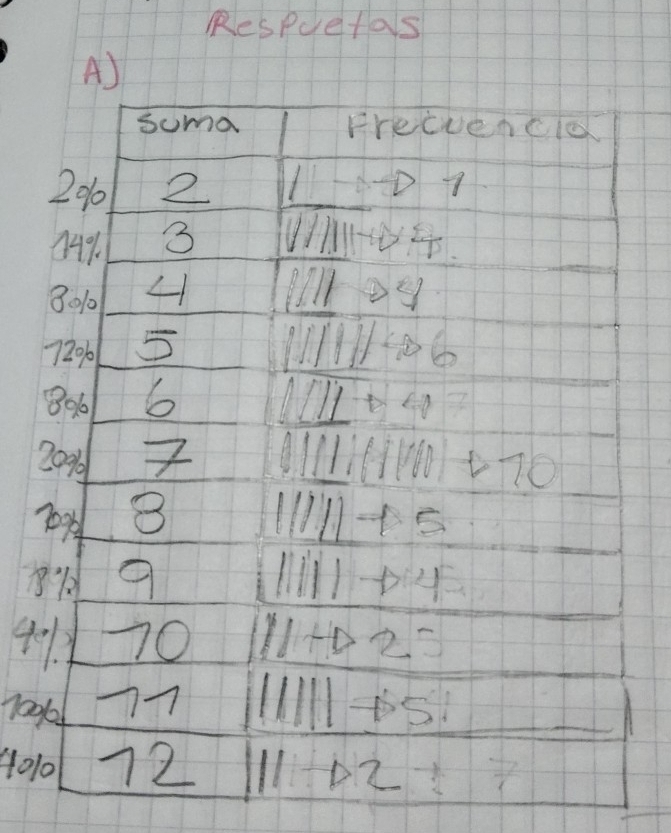 Respuetas
A)
Suma Frecuencia
2% 2 → 1
14% 3
8% 4 → 4
12% 5 → 6
8% 6 → 4
20% 7 → 10
10% 8 → 5
8% 9 → 4
4% 10 → 2
10% 11 → 5
4% 12 → 2